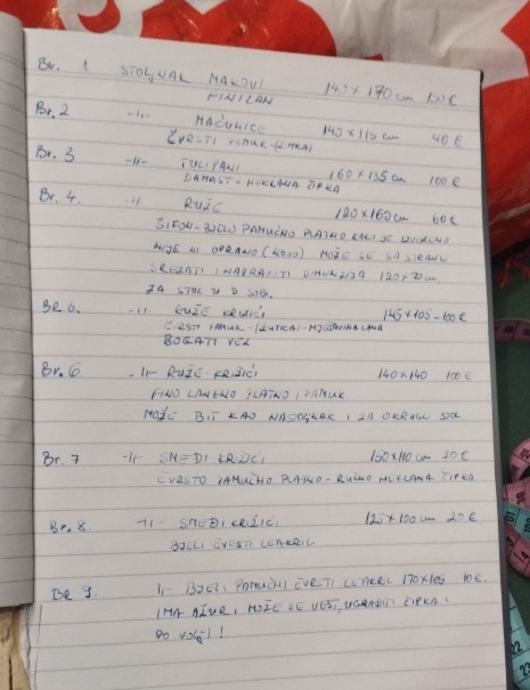 Br. 1 STOLJNAK MAKOVI 140 x 170 cm 150 €
FINI LAN
Br. 2 -11- MAĆUHICE 140 x 115 cm 40 €
ČVRSTI PAMUK-(ŽUTICA)
Br. 3 -11- TULIPANI 160 x 135 cm 100 €
DAMAST - HEKLANA ČIPKA
Br. 4. -11 RUŽE 120 x 160 cm 60 €
ŠIFON-BJELO PAMUČNO PLATNO KAKO JE
NIJE NI OPRANO (NOVO) MOŽE SE SA STRANE
SREZATI I NAPRAVITI DIMENZIJA 120 x 70 cm.
ZA STOL U D SOBI.
-11- RUŽE KRIŽIĆI 145 x 105 - 100 €
ČVRSTI PAMUK-(ŽUTICA)-MJEŠAVINA LANA
BOGATI VEZ
Br. 6. -11- RUŽE-KRIŽIĆI 140 x 140 100 €
FINO LANENO PLATNO I PAMUK.
MOŽE BIT KAO NADSTOLJNAK I ZA OKRUGLI STOL
Br. 7 -11- SMEĐI KRIŽIĆI 150 x 110 cm
ČVRSTO PAMUČNO PLATNO - RUČNO HEKLANA ČIPKA
Br. 8. -11- SMEĐI KRIŽIĆI 125 x 100 cm 20 €
BJELI ČVRSTI CEAKRIL
Br 9. BJELI PAMUČNI ČVRSTI CEAKRIL 170 x 105 10 €.
IMA AŽUR I MOŽE SE VEST, UGRADITI ČIPKA.
PO VOLJI!